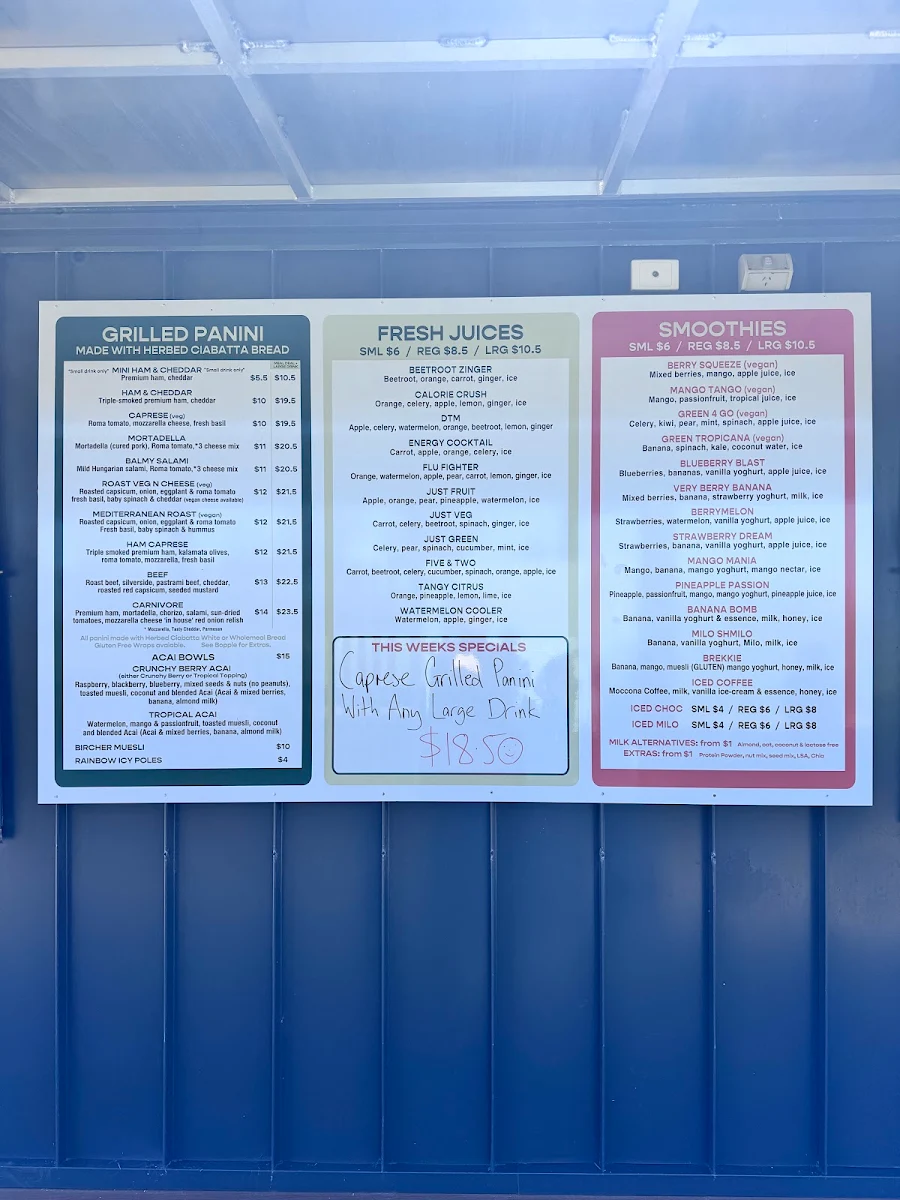 GRILLED PANINI
MADE WITH HERBED CIABATTA BREAD
"Small drink only" MINI HAM & CHEDDAR "Small drink only"
Premium ham, cheddar $5.5 $10.5
HAM & CHEDDAR
Triple-smoked premium ham, cheddar $10 $19.5
CAPRESE (veg)
Roma tomato, mozzarella cheese, fresh basil $10 $19.5
MORTADELLA
Mortadella (cured pork), Roma tomato,*3 cheese mix $11 $20.5
BALMY SALAMI
Mild Hungarian salami, Roma tomato,*3 cheese mix $11 $20.5
ROAST VEG N CHEESE (veg)
Roasted capsicum, onion, eggplant & roma tomato $12 $21.5
fresh basil, baby spinach & cheddar (vegan cheese available)
MEDITERRANEAN ROAST (vegan)
Roasted capsicum, onion, eggplant & roma tomato $12 $21.5
Fresh basil, baby spinach & hummus
HAM CAPRESE
Triple smoked premium ham, kalamata olives, $12 $21.5
roma tomato, mozzarella, fresh basil
BEEF
Roast beef, silverside, pastrami beef, cheddar, $13 $22.5
roasted red capsicum, seeded mustard
CARNIVORE
Premium ham, mortadella, chorizo, salami, sun-dried $14 $23.5
tomatoes, mozzarella cheese 'in house' red onion relish
* Mozzarella, Tasty Cheddar, Parmesan
All panini made with Herbed Ciabatta White or Wholemeal Bread
Gluten Free Wraps avaiable. See Bapple for Extras.
ACAI BOWLS $15
CRUNCHY BERRY ACAI
(either Crunchy Berry or Tropical Topping)
Raspberry, blackberry, blueberry, mixed seeds & nuts (no peanuts),
toasted muesli, coconut and blended Acai (Acai & mixed berries,
banana, almond milk)
TROPICAL ACAI
Watermelon, mango & passionfruit, toasted muesli, coconut
and blended Acai (Acai & mixed berries, banana, almond milk)
BIRCHER MUESLI $10
RAINBOW ICY POLES $4
FRESH JUICES
SML $6 / REG $8.5 / LRG $10.5
BEETROOT ZINGER
Beetroot, orange, carrot, ginger, ice
CALORIE CRUSH
Orange, celery, apple, lemon, ginger, ice
DTM
Apple, celery, watermelon, orange, beetroot, lemon, ginger
ENERGY COCKTAIL
Carrot, apple, orange, celery, ice
FLU FIGHTER
Orange, watermelon, apple, pear, carrot, lemon, ginger, ice
JUST FRUIT
Apple, orange, pear, pineapple, watermelon, ice
JUST VEG
Carrot, celery, beetroot, spinach, ginger, ice
JUST GREEN
Celery, pear, spinach, cucumber, mint, ice
FIVE & TWO
Carrot, beetroot, celery, cucumber, spinach, orange, apple, ice
TANGY CITRUS
Orange, pineapple, lemon, lime, ice
WATERMELON COOLER
Watermelon, apple, ginger, ice
THIS WEEKS SPECIALS
Caprese Grilled Panini
With Any Large Drink
$18.50
SMOOTHIES
SML $6 / REG $8.5 / LRG $10.5
BERRY SQUEEZE (vegan)
Mixed berries, mango, apple juice, ice
MANGO TANGO (vegan)
Mango, passionfruit, tropical juice, ice
GREEN 4 GO (vegan)
Celery, kiwi, pear, mint, spinach, apple juice, ice
GREEN TROPICANA (vegan)
Banana, spinach, kale, coconut water, ice
BLUEBERRY BLAST
Blueberries, bananas, vanilla yoghurt, apple juice, ice
VERY BERRY BANANA
Mixed berries, banana, strawberry yoghurt, milk, ice
BERRYMELON
Strawberries, watermelon, vanilla yoghurt, apple juice, ice
STRAWBERRY DREAM
Strawberries, banana, vanilla yoghurt, apple juice, ice
MANGO MANIA
Mango, banana, mango yoghurt, mango nectar, ice
PINEAPPLE PASSION
Pineapple, passionfruit, mango, mango yoghurt, pineapple juice, ice
BANANA BOMB
Banana, vanilla yoghurt & essence, milk, honey, ice
MILO SHMILO
Banana, vanilla yoghurt, Milo, milk, ice
BREKKIE
Banana, mango, muesli (GLUTEN) mango yoghurt, honey, milk, ice
ICED COFFEE
Moccona Coffee, milk, vanilla ice-cream & essence, honey, ice
ICED CHOC SML $4 / REG $6 / LRG $8
ICED MILO SML $4 / REG $6 / LRG $8
MILK ALTERNATIVES: from $1 Almond, oat, coconut & lactose free
EXTRAS: from $1 Protein Powder, nut mix, seed mix, LSA, Chia